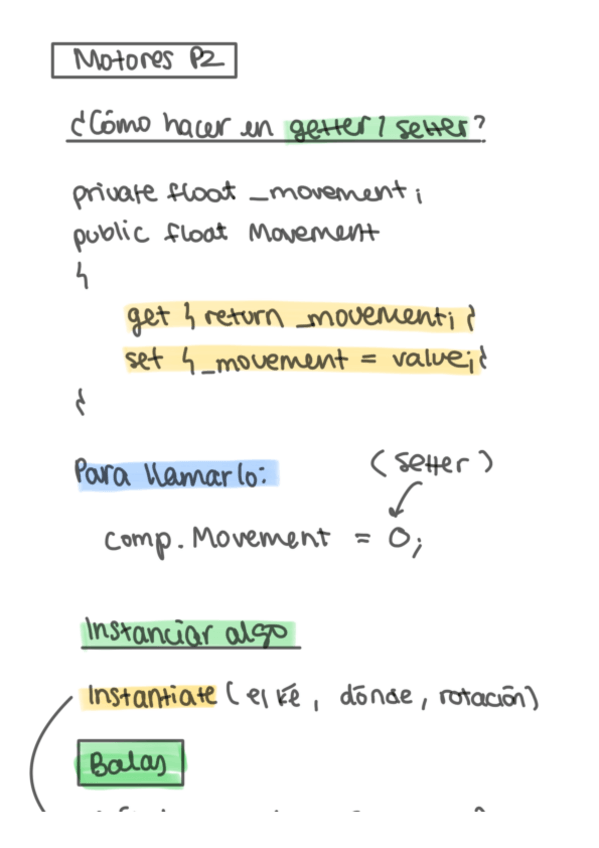 Motores P2
¿Cómo hacer en getter / setter?
private float _movement;
public float Movement
{
get { return _movement; }
set { _movement = value; }
}
Para llamarlo:
(setter)
comp. Movement = 0;
Instanciar algo
Instantiate (el ké, dónde, rotación)
Balas